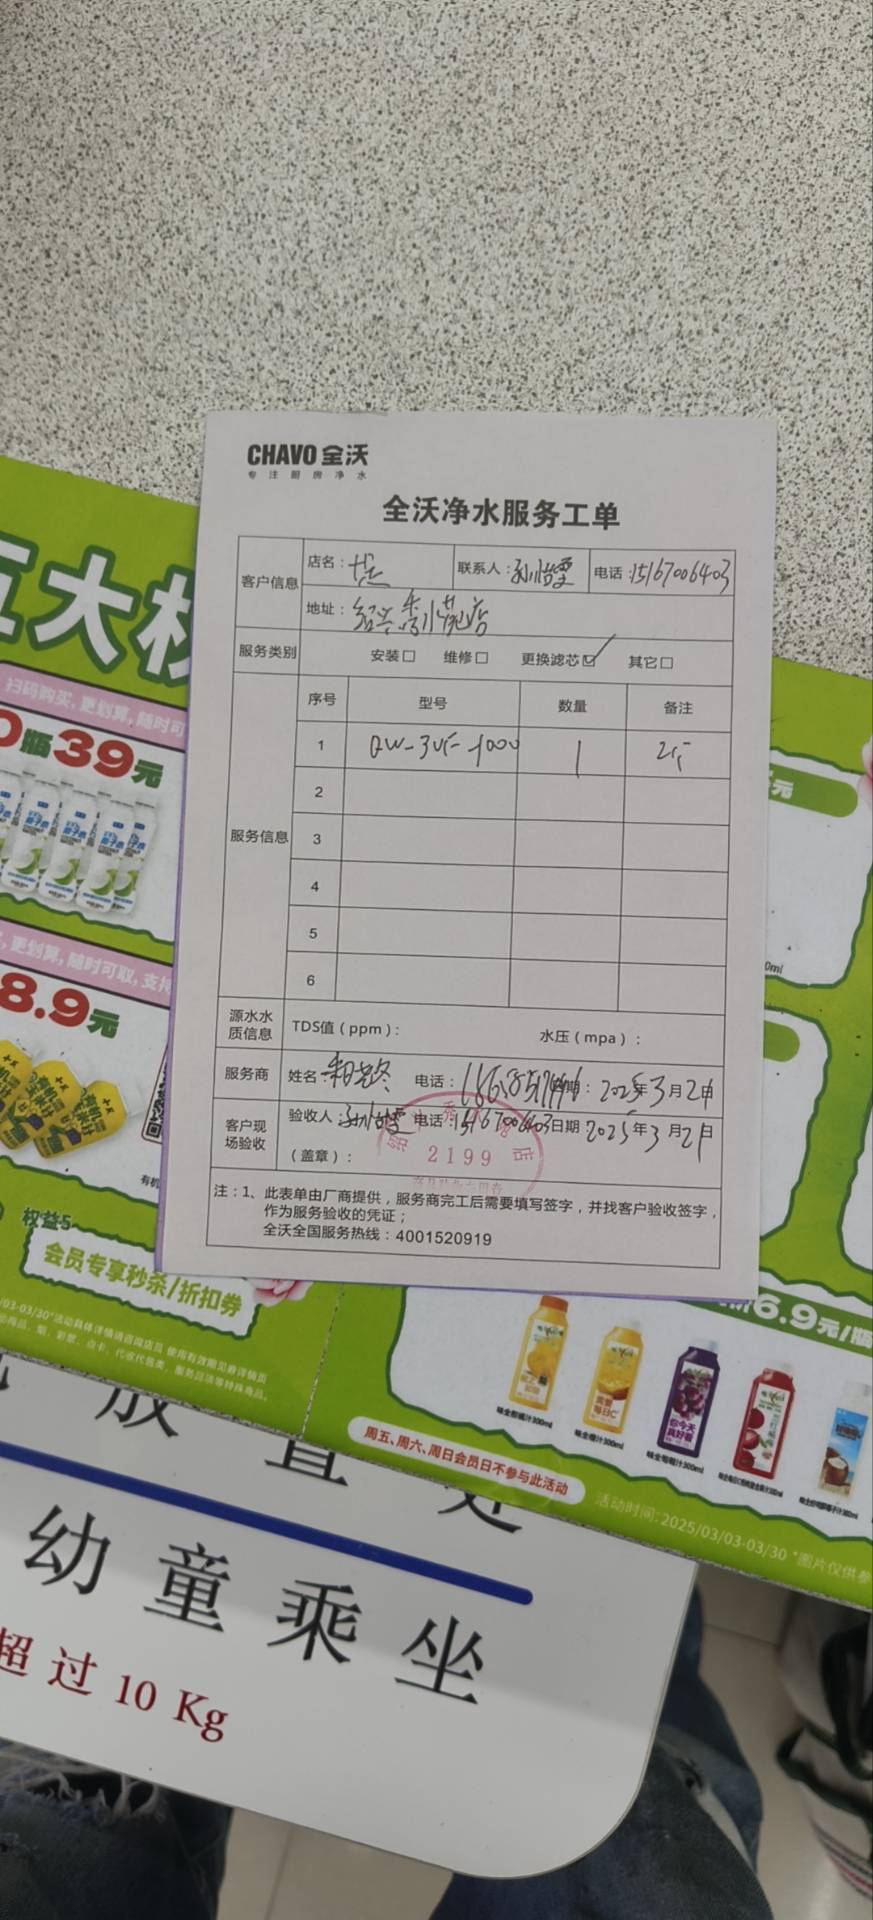 CHAVO 全沃
专注厨房净水
全沃净水服务工单
客户信息
店名：
联系人：孙怡雯
电话：15167006403
地址：绍兴秀水苑店
服务类别
安装□ 维修□ 更换滤芯☑ 其它□
服务信息
序号 型号 数量 备注
1 QW-3UF-1000 1
2
3
4
5
6
源水水质信息
TDS值（ppm）：
水压（mpa）：
服务商
姓名：
电话：
2025年3月2
客户现场验收
验收人：孙怡雯 电话15167006403日期2025年3月2日
（盖章）：
2199
店
注：1、此表单由厂商提供，服务商完工后需要填写签字，并找客户验收签字，
作为服务验收的凭证；
全沃全国服务热线：4001520919
五大权
扫码购买，更划算，随时可
0瓶39元
更划算，随时可取，支持
8.9元
权益5
会员专享秒杀/折扣券
03/03-03/30*活动具体详情请咨询店员 使用有效期见券详情页
元
0ml
6.9元/瓶
味全橙汁300ml
味全葡萄汁300ml
周五、周六、周日会员日不参与此活动
活动时间：2025/03/03-03/30 *图片仅供参
放置处
幼童乘坐
超过10Kg